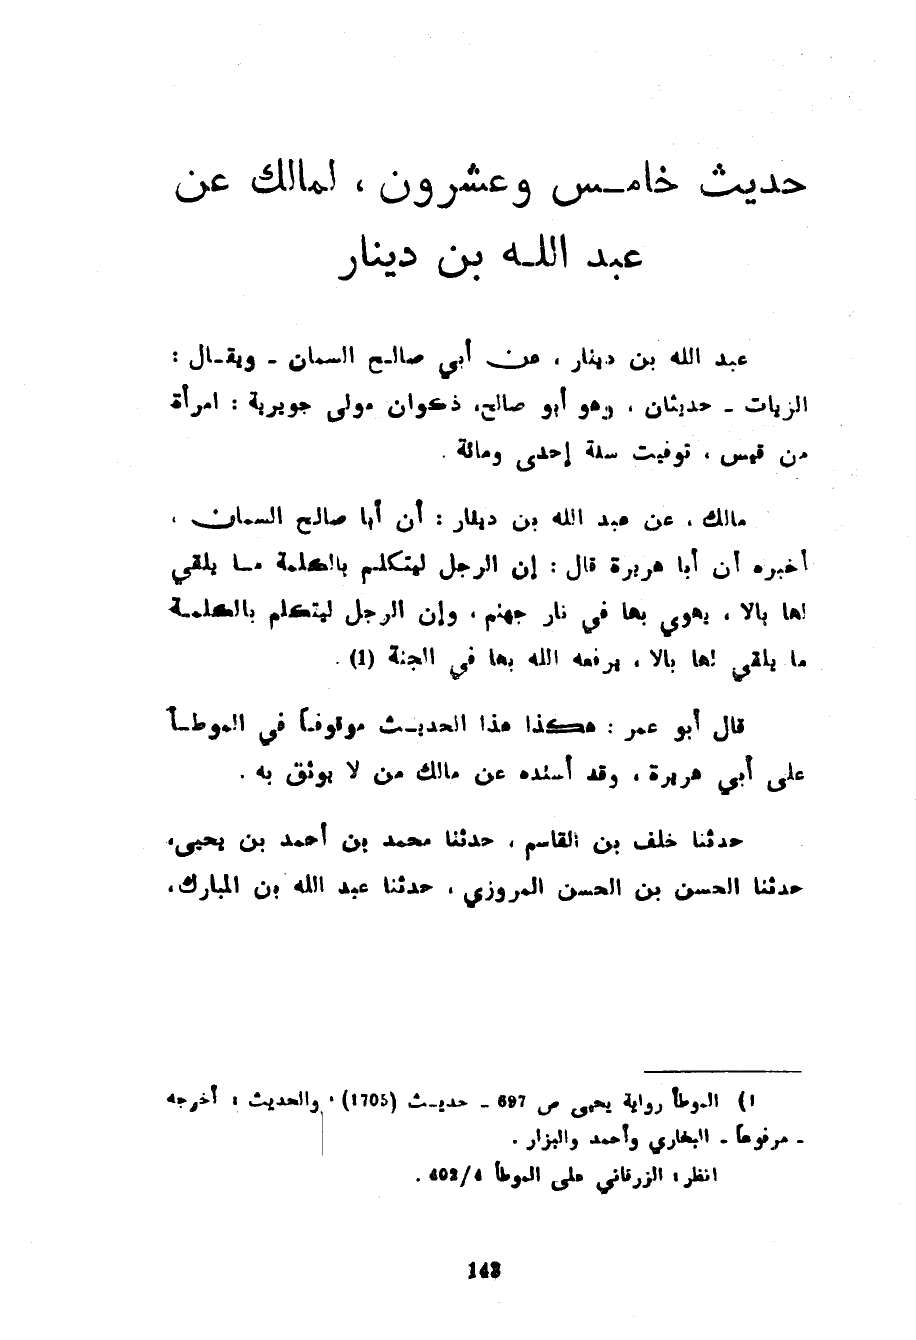 حديث خامس وعشرون ، لمالك عن
عبد الله بن دينار
عبد الله بن دينار ، عن أبي صالح السمان ـ ويقال :
الزيات ـ حديثان ، وهو أبو صالح، ذكوان مولى جويرية : امرأة
من قيس ، توفيت سنة إحدى ومائة .
مالك ، عن عبد الله بن دينار : أن أبا صالح السمان ،
أخبره أن أبا هريرة قال : إن الرجل ليتكلم بالكلمة ما يلقي
لها بالا ، يهوي بها في نار جهنم ، وإن الرجل ليتكلم بالكلمة
ما يلقي لها بالا ، يرفعه الله بها في الجنة (1) .
قال أبو عمر : هكذا هذا الحديث موقوفاً في الموطأ
على أبي هريرة ، وقد أسنده عن مالك من لا يوثق به .
حدثنا خلف بن القاسم ، حدثنا محمد بن أحمد بن يحيى،
حدثنا الحسن بن الحسن المروزي ، حدثنا عبد الله بن المبارك،
1) الموطأ رواية يحيى ص 697 ـ حديث (1705) ، والحديث : أخرجه
ـ مرفوعاً ـ البخاري وأحمد والبزار .
انظر : الزرقاني على الموطأ 402/4 .
143